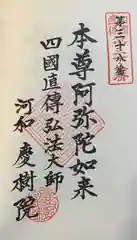 本尊阿弥陀如来
四國直傳弘法大師
河和 慶樹院